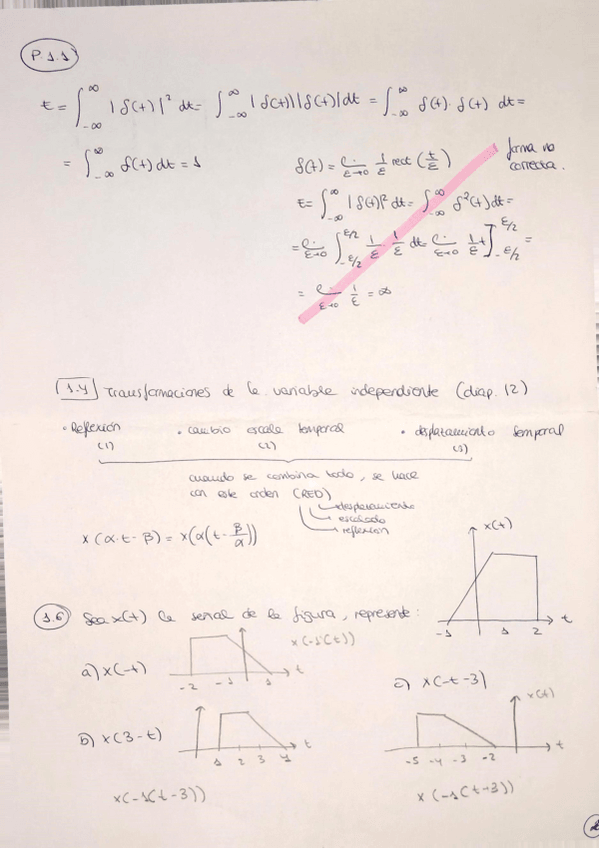 P.1.1
E = ∫_{-∞}^{∞} |δ(t)|² dt = ∫_{-∞}^{∞} |δ(t)||δ(t)| dt = ∫_{-∞}^{∞} δ(t)·δ(t) dt =
= ∫_{-∞}^{∞} δ(t) dt = 1
forma no correcta.
δ(t) = l._{ε→0} 1/ε rect (t/ε)
E = ∫_{-∞}^{∞} |δ(t)|² dt = ∫_{-∞}^{∞} δ²(t) dt =
= l._{ε→0} ∫_{-ε/2}^{ε/2} 1/ε · 1/ε dt = l._{ε→0} 1/ε² t]_{-ε/2}^{ε/2} =
= l._{ε→0} 1/ε = ∞
1.4 Transformaciones de la variable independiente (diap. 12)
· Reflexión · cambio escala temporal · desplazamiento temporal
(1) (2) (3)
cuando se combina todo, se hace
con este orden (RED)
desplazamiento
escalado
reflexión
x(α·t - β) = x(α(t - β/α))
x(t)
-1 1 2 t
1.6 Sea x(t) la señal de la figura, represente:
x(-1(t))
a) x(-t)
-2 -1 1 t
c) x(-t-3)
x(t)
b) x(3-t)
1 2 3 4 t
-5 -4 -3 -2 t
x(-1(t-3))
x(-1(t+3))